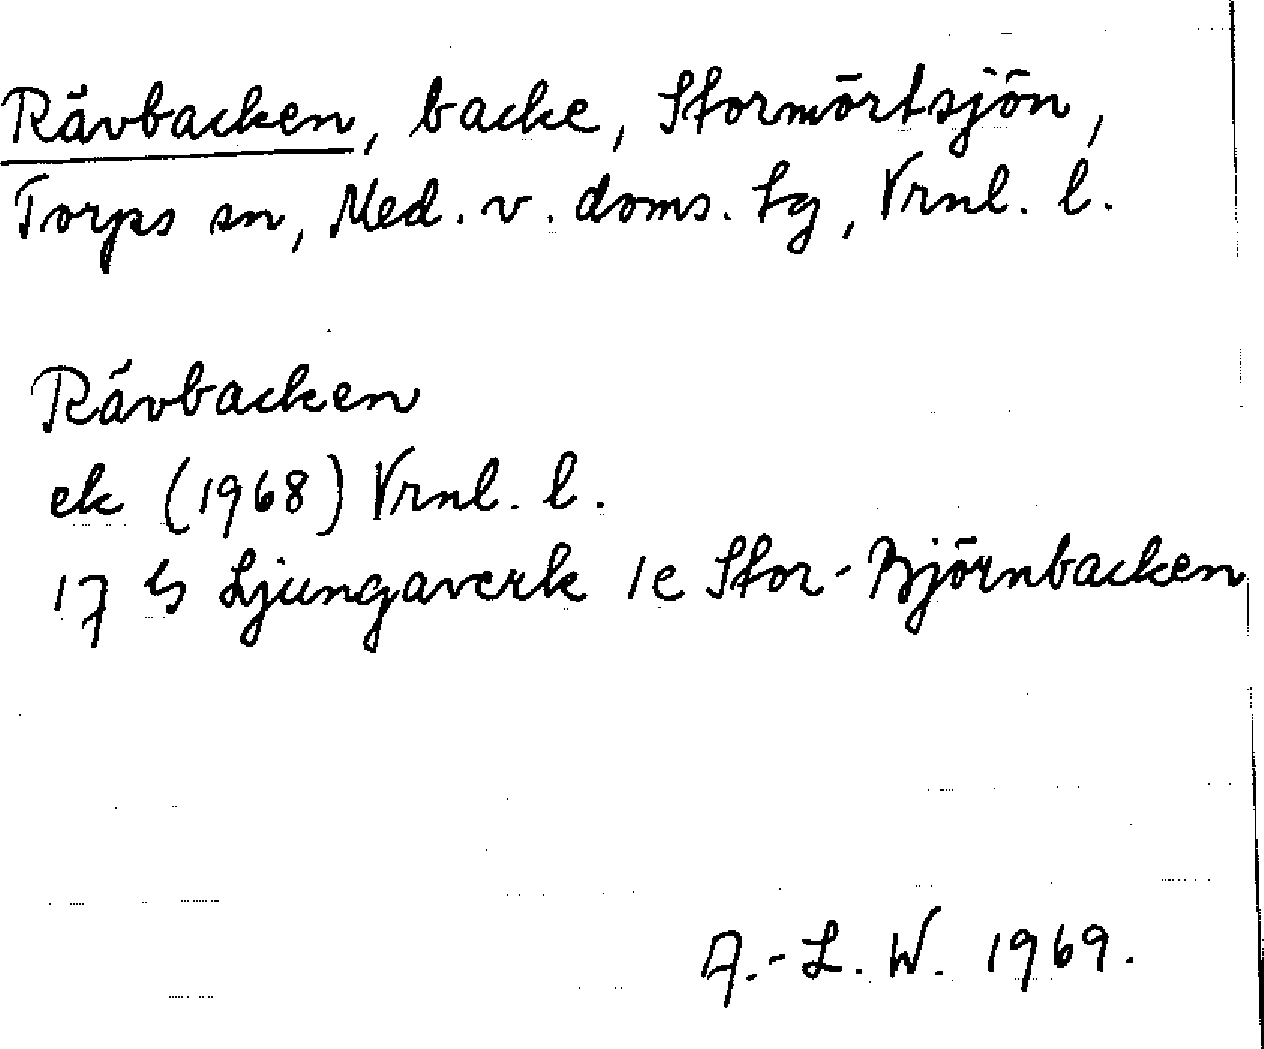 Rävbacken, backe, Stormörtsjön,
Torps sn, Med. v. doms. tg, Vrnl. l.
Rävbacken
ek (1968) Vrnl. l.
17 G Ljungaverk 1e Stor-Björnbacken
A.-L. W. 1969.